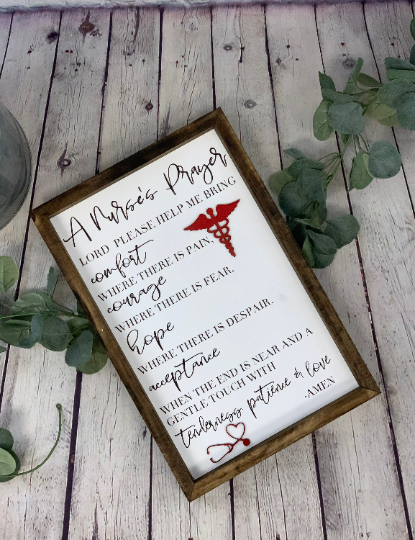 A Nurse's Prayer
LORD PLEASE HELP ME BRING
comfort
WHERE THERE IS PAIN.
courage
WHERE THERE IS FEAR.
hope
WHERE THERE IS DESPAIR.
acceptance
WHEN THE END IS NEAR AND A
GENTLE TOUCH WITH
tenderness patience & love
-AMEN